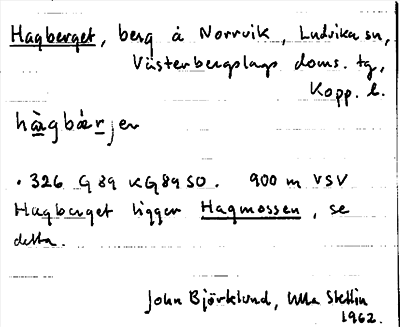 Hagberget, berg å Norrvik, Ludvika sn,
Västerbergslags doms. tg,
Kopp. l.
hàgbǽrjer
• 326 G 89 KG 89 SO. 900 m VSV
Hagberget ligger Hagmossen, se
detta.
John Björklund, Ulla Stellin
1962.